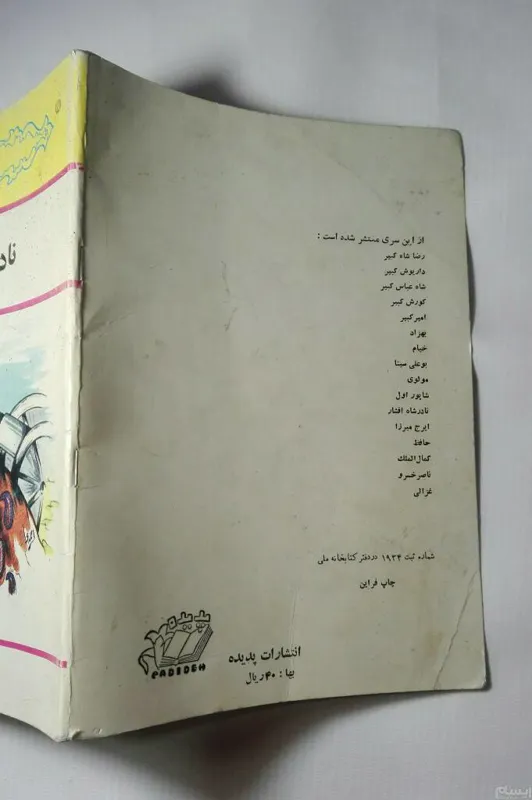 از این سری منتشر شده است :
رضا شاه کبیر
داریوش کبیر
شاه عباس کبیر
کورش کبیر
امیرکبیر
بهزاد
خیام
بوعلی سینا
مولوی
شاپور اول
نادرشاه افشار
ایرج میرزا
حافظ
کمال‌الملک
ناصرخسرو
غزالی
شماره ثبت ۱۹۳۴ در دفتر کتابخانه ملی
چاپ فراین
پدیده
PADIDEH
انتشارات پدیده
بها : ۴۰ ریال
ناد
ایسام